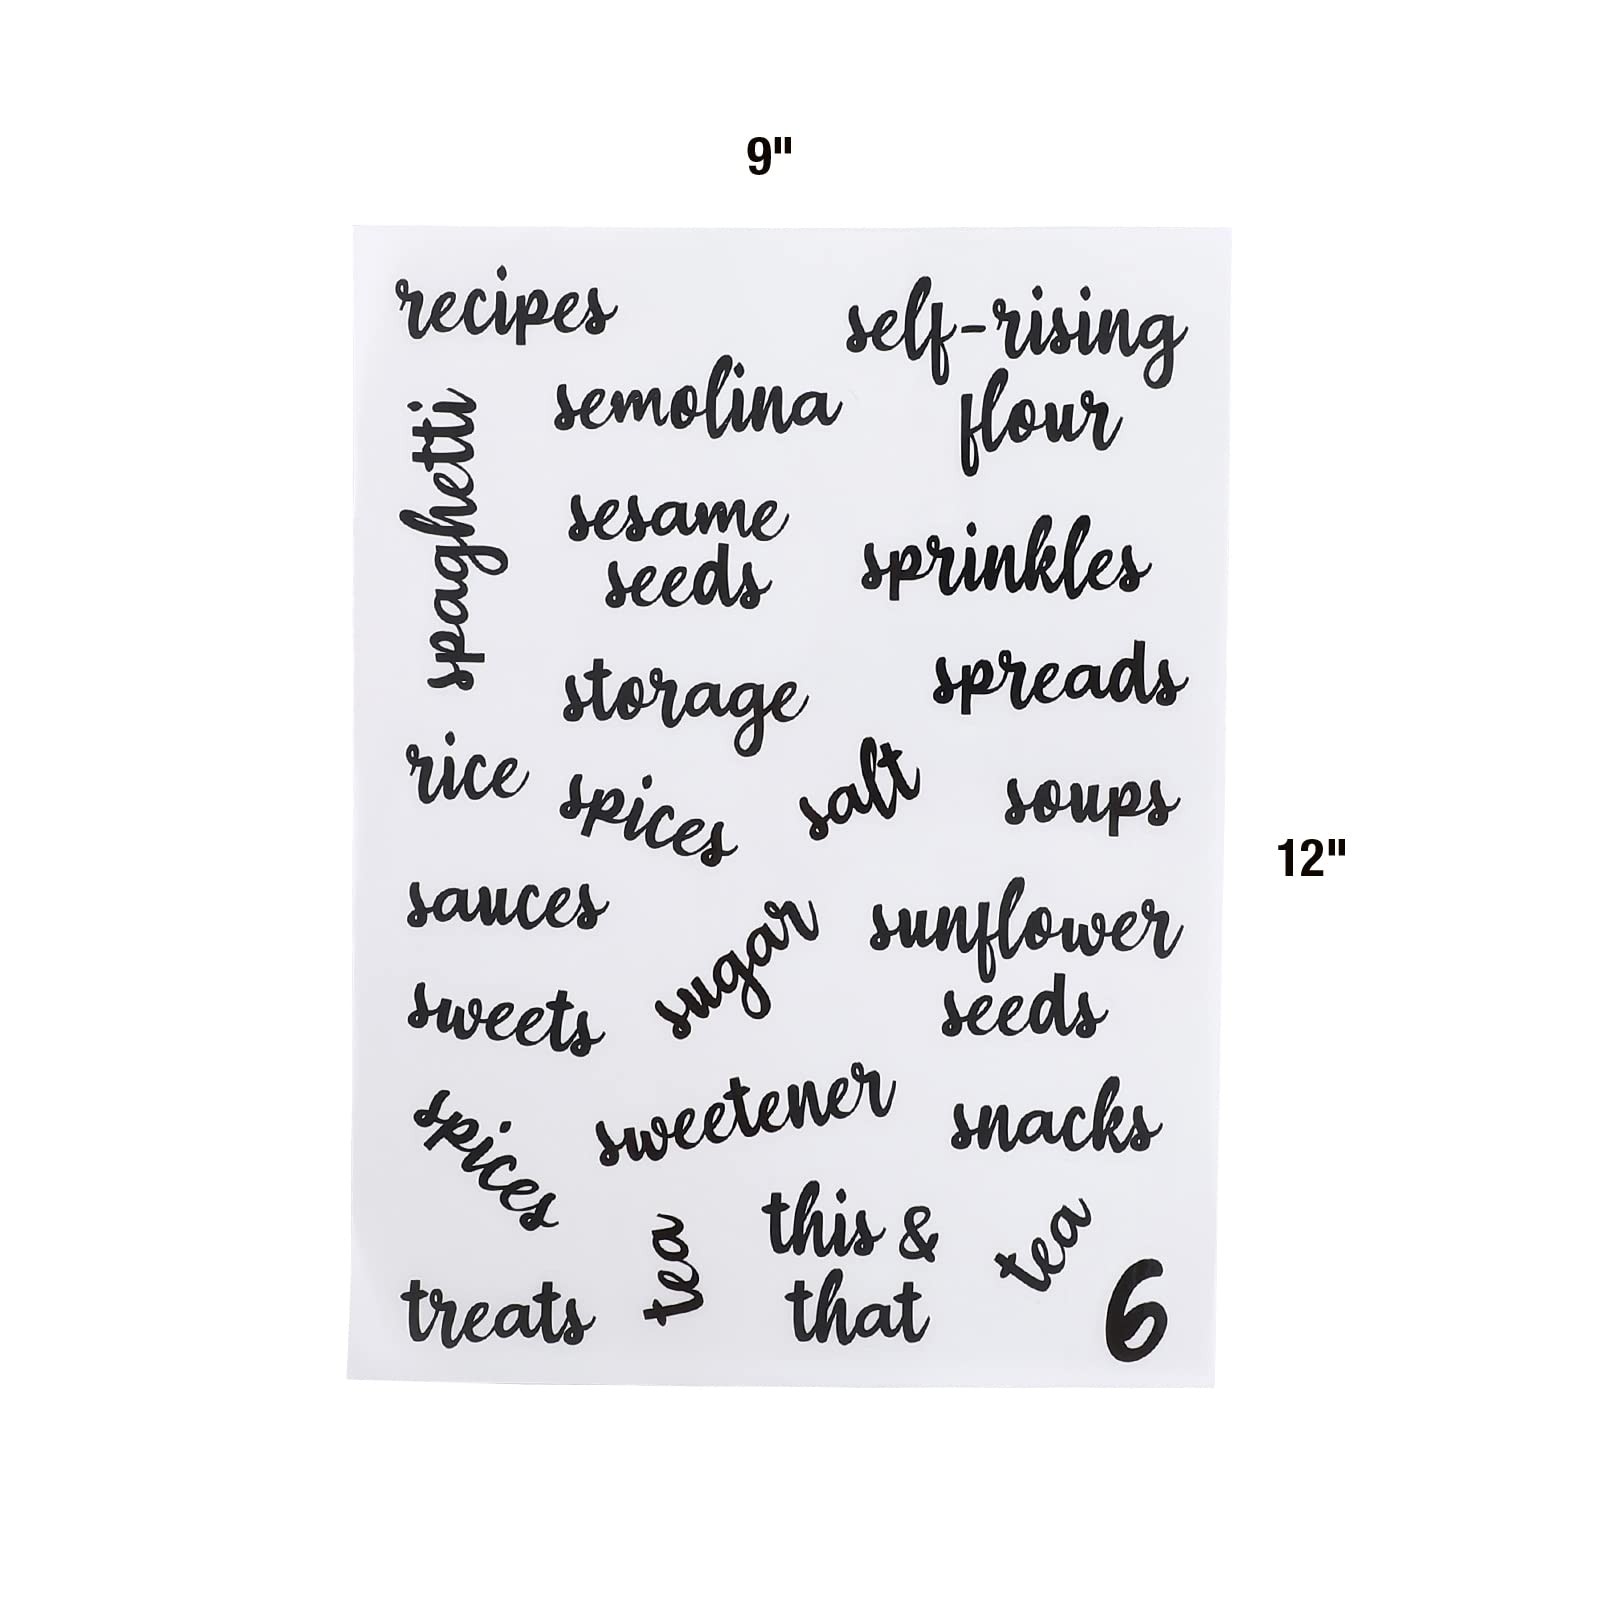 9"
recipes
self-rising
flour
semolina
spaghetti
sesame
seeds
sprinkles
storage
spreads
rice
spices
salt
soups
sauces
sugar
sunflower
seeds
sweets
sweetener
snacks
spices
tea
this &
that
tea
treats
6
12"